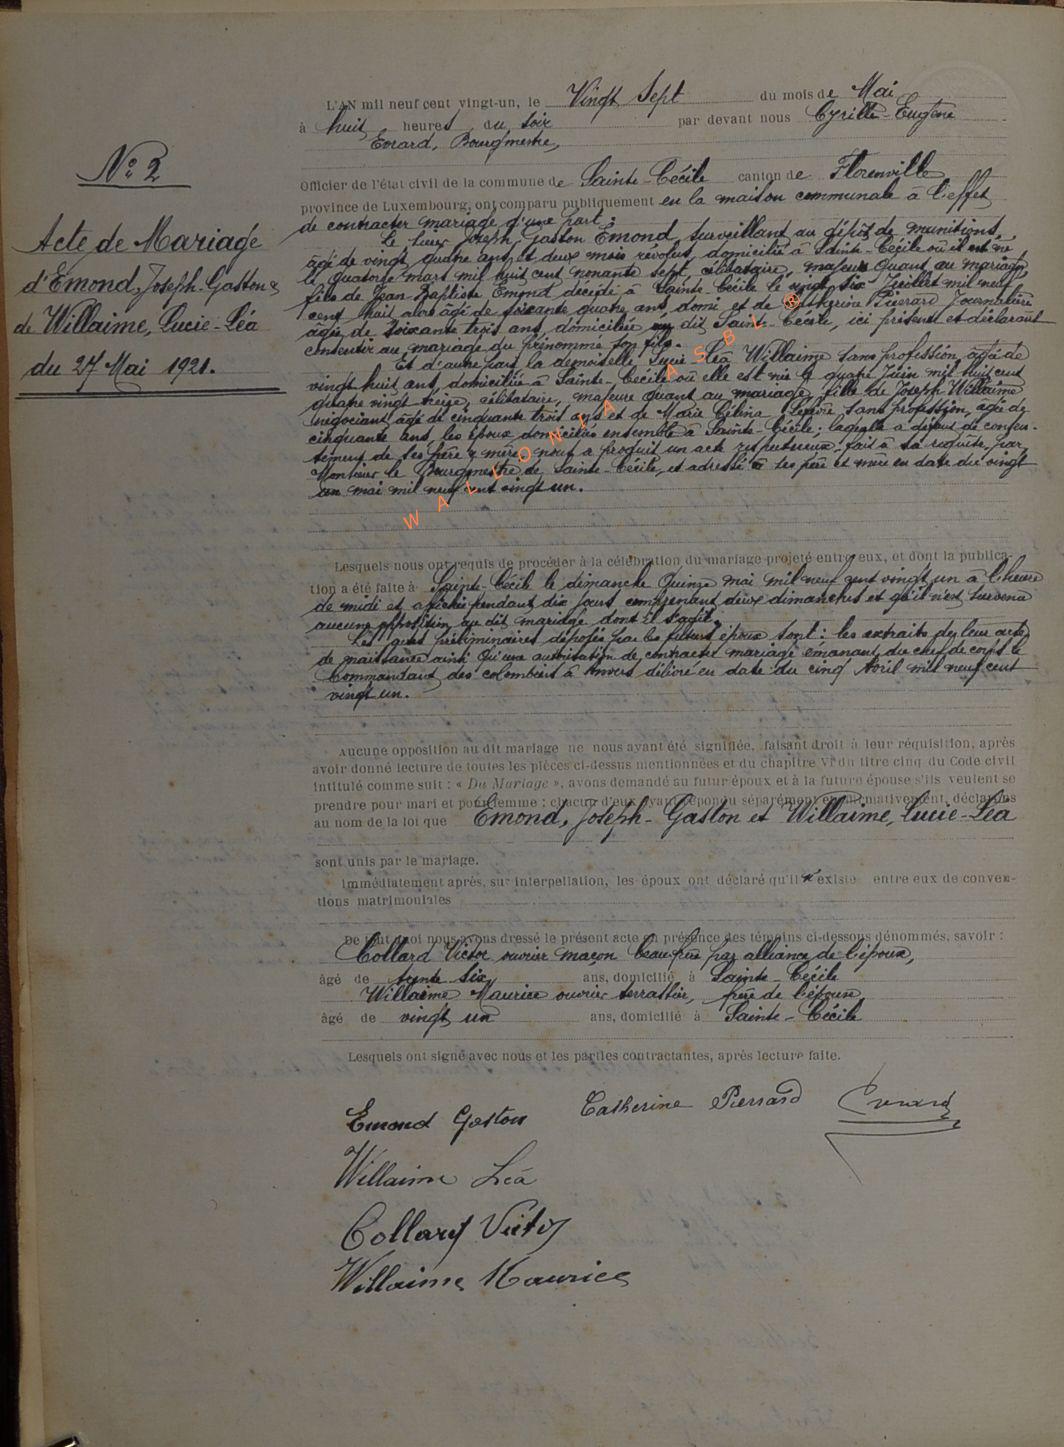 L'AN mil neuf cent vingt-un, le Vingt Sept du mois de Mai
à huit heures du soir par devant nous Cyrille-Eugène
Evrard, Bourgmestre,
N° 2
Officier de l'état civil de la commune de Sainte-Cécile canton de Florenville
province de Luxembourg, ont comparu publiquement en la maison communale à l'effet
de contracter mariage d'une part :
Acte de Mariage
d'Emond, Joseph-Gaston &
de Willaime, Lucie-Léa
du 27 Mai 1921.
Le sieur Joseph Gaston Emond surveillant au dépôt de munitions,
âgé de vingt quatre ans et deux mois révolus, domicilié à Sainte-Cécile où il est né
le quatorze mars mil huit cent nonante sept, célibataire, majeur quant au mariage,
fils de Jean Baptiste Emond décédé à Sainte Cécile le vingt six Juillet mil neuf
cent huit alors âgé de soixante quatre ans, domé et de Catherine Pierard Journalière
âgée de soixante trois ans, domiciliée au dit Sainte-Cécile, ici présente et déclarant
consentir au mariage du prénommé son fils.
Et d'autre part la demoiselle Lucie Léa Willaime sans profession, âgée de
vingt huit ans, domiciliée à Sainte-Cécile où elle est née le quatre Juin mil huit cent
quatre vingt treize, célibataire, majeure quant au mariage, fille de Joseph Willaime
négociant âgé de cinquante trois ans et de Marie Célina Lefèvre sans profession, âgée de
cinquante ans, les époux domiciliés ensemble à Sainte-Cécile; laquelle à défaut de consen-
tement de ses père & mère nous a produit un acte respectueux fait à sa requête, par
Monsieur le Bourgmestre de Sainte-Cécile, et adressé à ses père et mère en date du vingt
un mai mil neuf cent vingt un.
WALLONIA ASBL ®
Lesquels nous ont requis de procéder à la célébration du mariage projeté entre eux, et dont la publica-
tion a été faite à Sainte Cécile le dimanche Quinze mai mil neuf cent vingt un à l'heure
de midi et affichée pendant dix jours comprenant deux dimanches et qu'il n'est survenu
aucune opposition au dit mariage dont il s'agit.
Les actes préliminaires déposés par les futurs époux sont : les extraits de leur acte
de naissance ainsi qu'une autorisation de contracter mariage émanant du chef de corps le
Commandant des colombiers à Anvers délivré en date du cinq Avril mil neuf cent
vingt un.
Aucune opposition au dit mariage ne nous ayant été signifiée, faisant droit à leur réquisition, après
avoir donné lecture de toutes les pièces ci-dessus mentionnées et du chapitre VI du titre cinq du Code civil
intitulé comme suit : « Du Mariage », avons demandé au futur époux et à la future épouse s'ils veulent se
prendre pour mari et pour femme ; chacun d'eux ayant répondu séparément et affirmativement, déclarons
au nom de la loi que Emond, Joseph-Gaston et Willaime, Lucie-Léa
sont unis par le mariage.
Immédiatement après, sur interpellation, les époux ont déclaré qu'il n'existe entre eux de conven-
tions matrimoniales
De tout quoi nous avons dressé le présent acte en présence des témoins ci-dessous dénommés, savoir :
Collard Victor ouvrier maçon beau-frère par alliance de l'époux,
âgé de trente six ans, domicilié à Sainte-Cécile
Willaime Maurice ouvrier terrassier, frère de l'épouse
âgé de vingt un ans, domicilié à Sainte-Cécile
Lesquels ont signé avec nous et les parties contractantes, après lecture faite.
Emond Gaston Catherine Pierrard Evrard
Willaime Léa
Collard Victor
Willaime Maurice